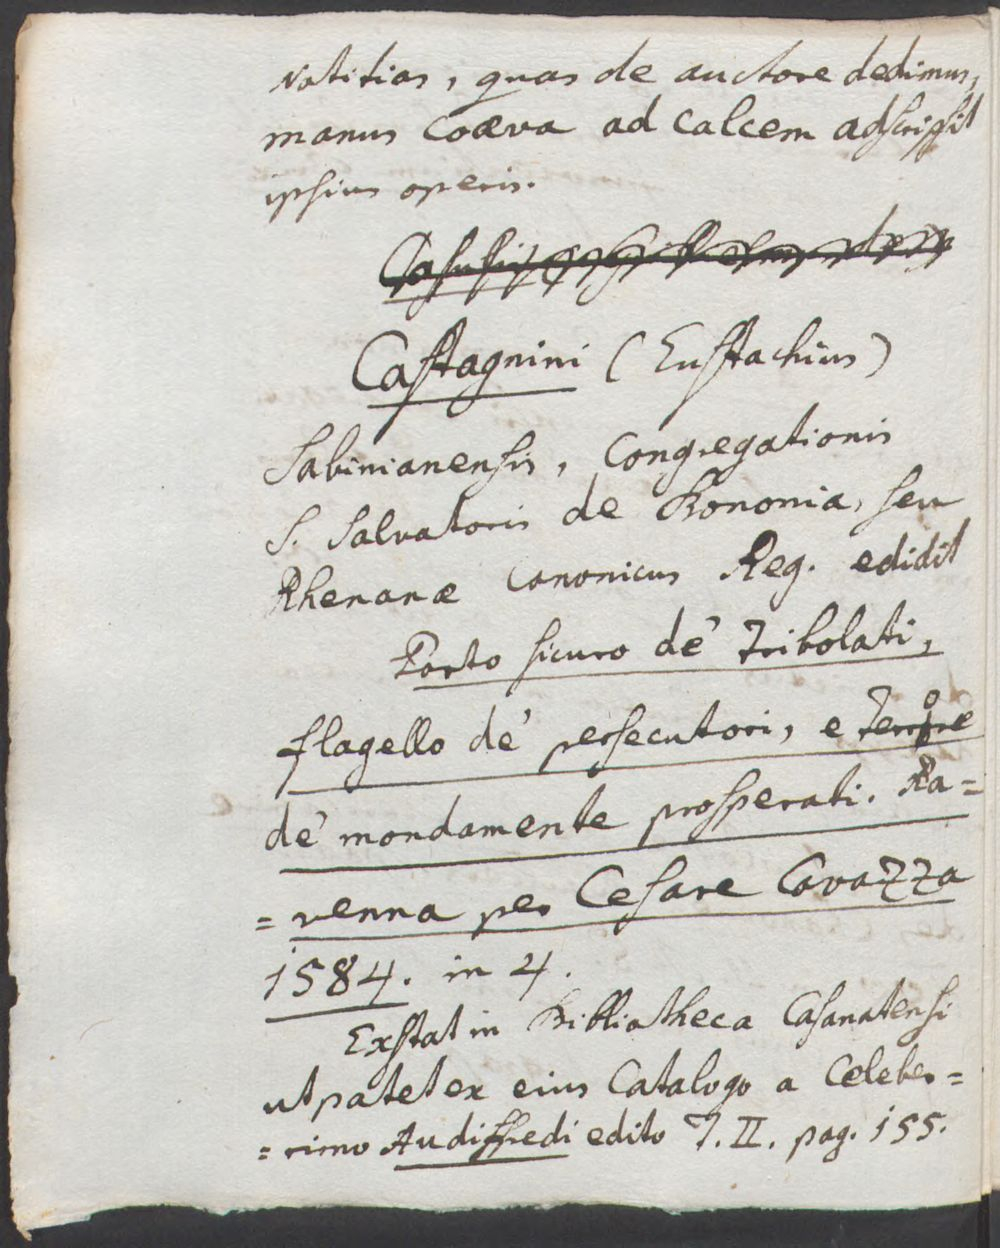 Notitias, quas de auctore dedimus,
manus coæva ad calcem adscripsit
ipsius operis.
Castagnini (Eustachius)
Sabinianensis, Congregationis
S. Salvatoris de Bononia, seu
Rhenanæ Canonicus Reg. edidit
Porto sicuro de' Tribolati,
flagello de' persecutori, e
de' mondamente prosperati. Ra=
=venna per Cesare Cavazza
1584. in 4.
Exstat in Bibliotheca Casanatensi
ut patet ex eius Catalogo a Celeber=
=rimo Audiffredi edito T. II. pag. 155.